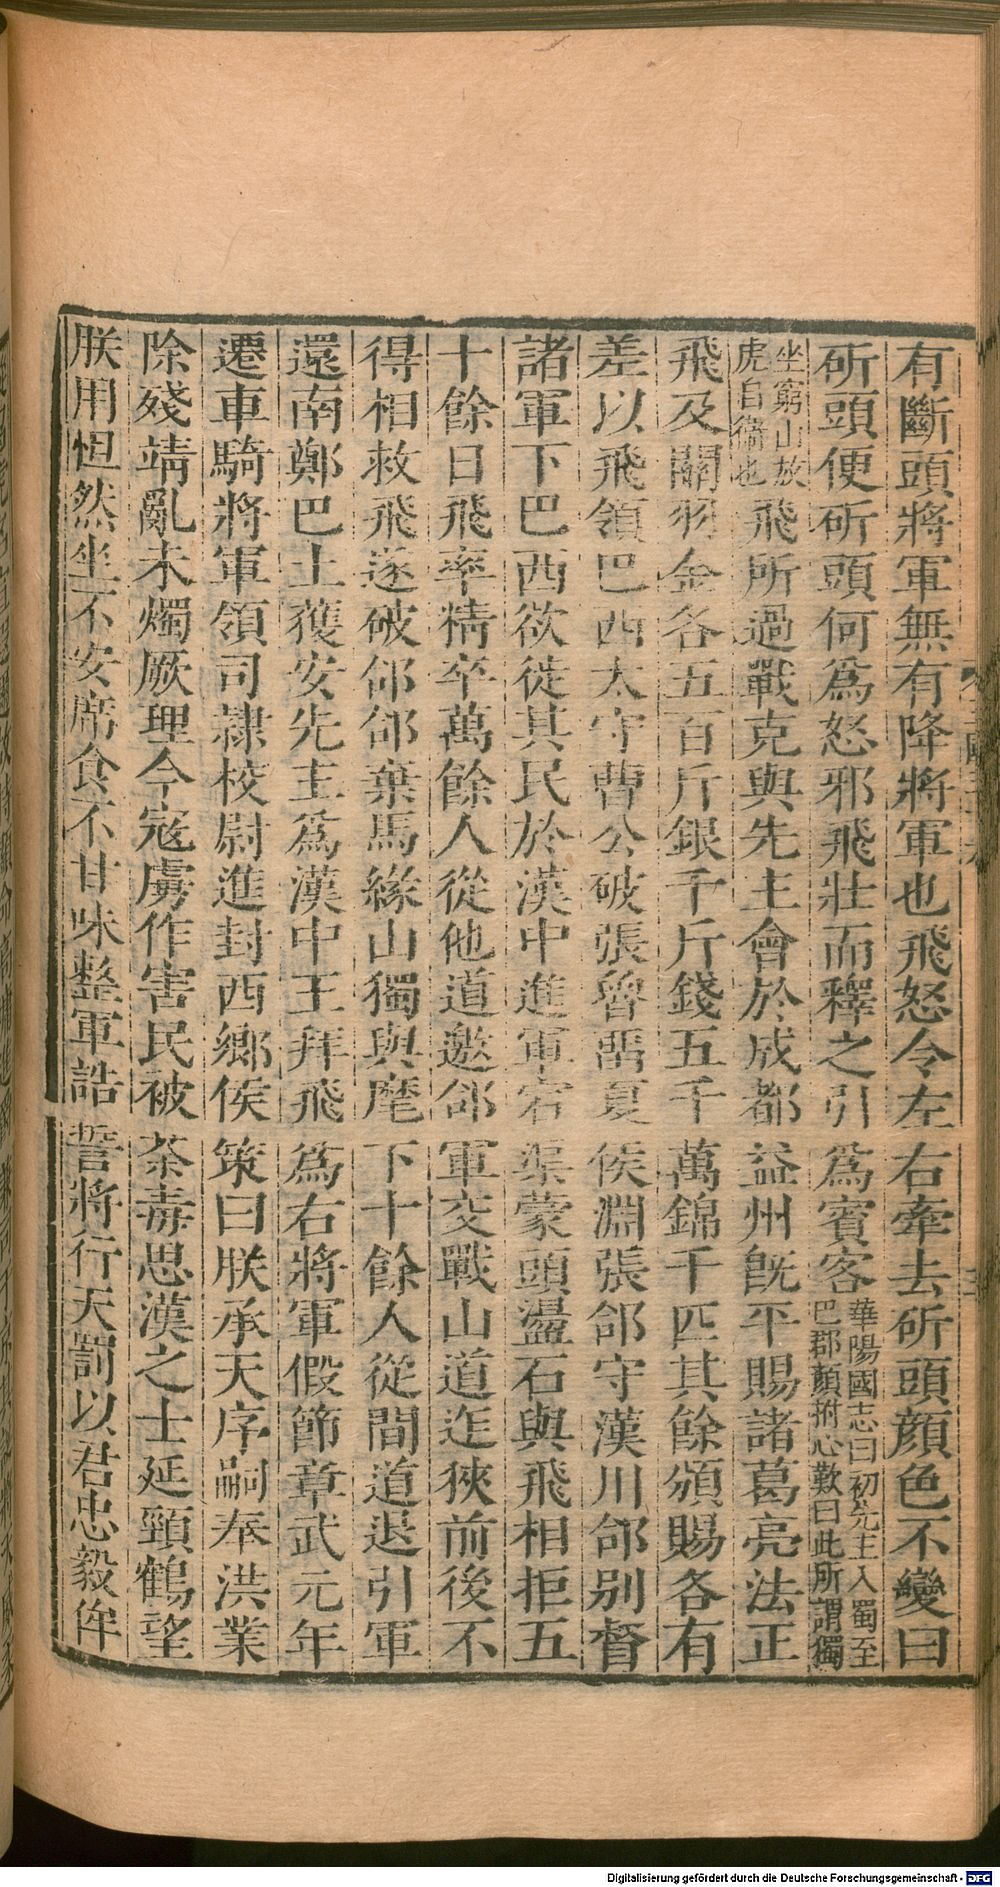 有斷頭將軍無有降將軍也飛怒令左右牽去斫頭顏色不變曰
斫頭便斫頭何爲怒邪飛壯而釋之引爲賓客
華陽國志曰初先主入蜀至
巴郡顏拊心歎曰此所謂獨
坐窮山放
虎自衞也
飛所過戰克與先主會於成都益州旣平賜諸葛亮法正
飛及關羽金各五百斤銀千斤錢五千萬錦千匹其餘頒賜各有
差以飛領巴西太守曹公破張魯畱夏侯淵張郃守漢川郃別督
諸軍下巴西欲徙其民於漢中進軍宕渠蒙頭盪石與飛相拒五
十餘日飛率精卒萬餘人從他道邀郃軍交戰山道迮狹前後不
得相救飛遂破郃郃棄馬緣山獨與麾下十餘人從間道退引軍
還南鄭巴土獲安先主爲漢中王拜飛爲右將軍假節章武元年
遷車騎將軍領司隷校尉進封西鄉侯策曰朕承天序嗣奉洪業
除殘靖亂未燭厥理今寇虜作害民被荼毒思漢之士延頸鶴望
朕用怛然坐不安席食不甘味整軍誥誓將行天罰以君忠毅侔
Digitalisierung gefördert durch die Deutsche Forschungsgemeinschaft - DFG